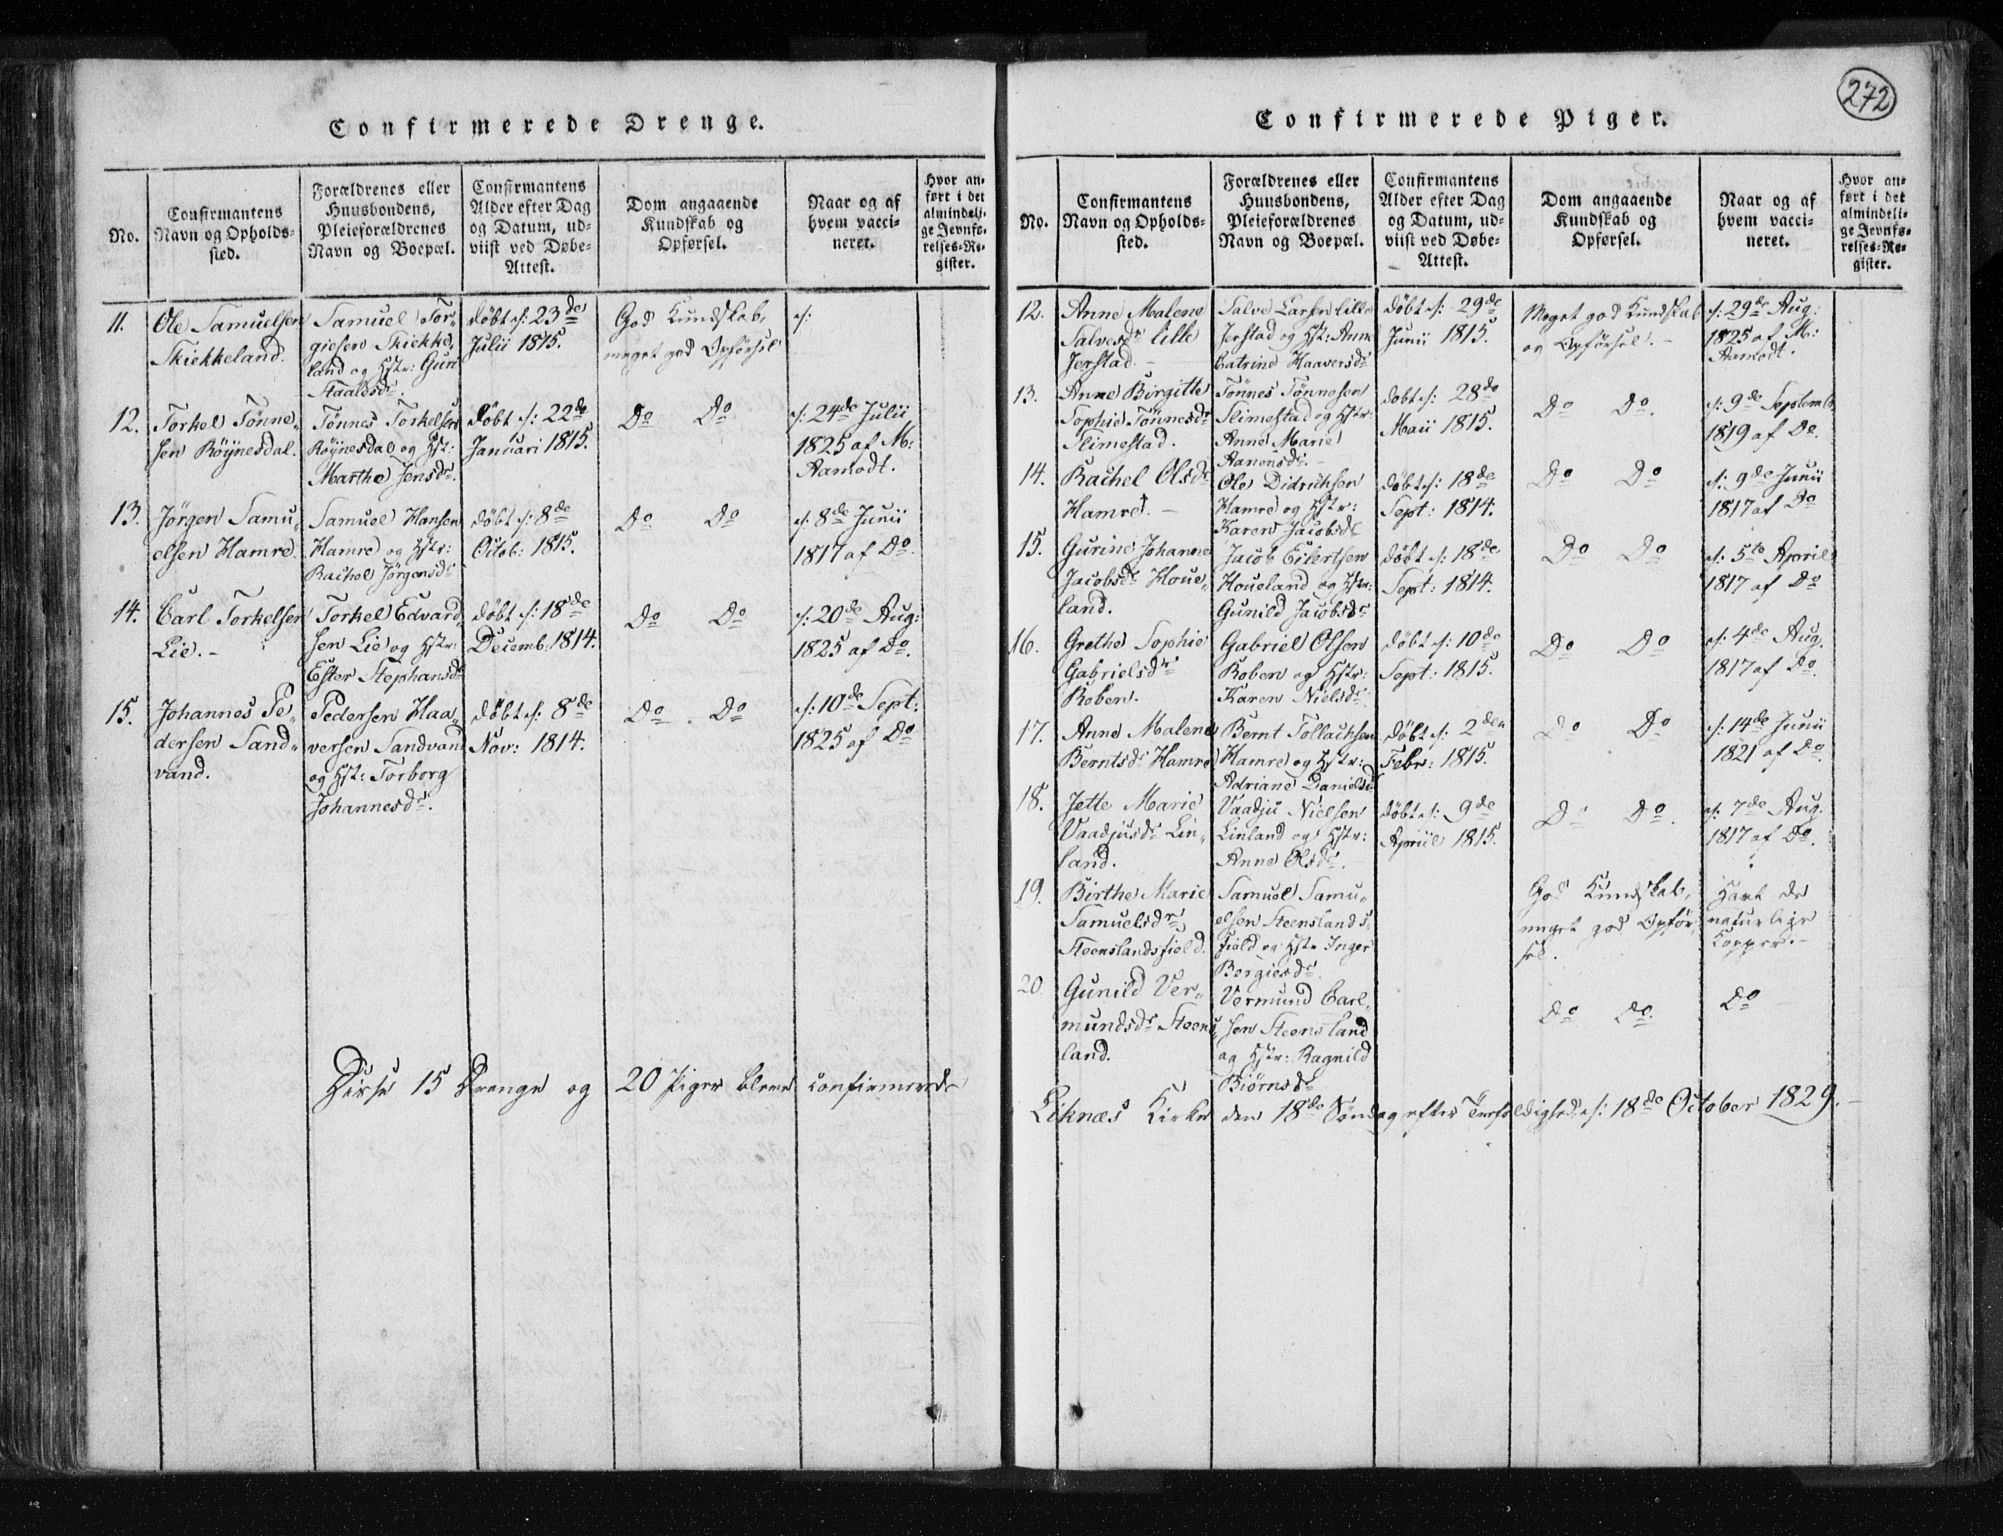 272
Confirmerede Drenge.
No.
Confirmantens
Navn og Opholds-
sted.
Forældrenes eller
Huusbondens,
Pleieforældrenes
Navn og Boepæl.
Confirmantens
Alder efter Dag
og Datum, ud-
viist ved Døbe-
Attest.
Dom angaaende
Kundskab og
Opførsel.
Naar og af
hvem vacci-
neret.
Hvor an-
ført i det
almindeli-
ge Jevnfø-
relses-Re-
gister.
11.
Ole Samuelsen
Skiekkeland.
Samuel Tor-
giesen Skiekke-
land og Hstr: Guri
Staalesdr.
døbt d: 23de
Julii 1815.
God Kundskab,
meget god Opførsel
d:
12.
Torkel Tønne-
sen Röynesdal.
Tønnes Torkelsen
Röynesdal og Hst:
Marthe Jensdr.
døbt d: 22de
Januari 1815.
Do Do
d: 24de Julii
1825 af M:
Aamodt.
13.
Jörgen Samu-
elsen Hamre.
Samuel Hansen
Hamre og Hstr:
Rachel Jörgensdr
døbt d: 8de
Octob: 1815.
Do Do
d: 8de Junii
1817 af Do.
14.
Carl Torkelsen
Lie. -
Torkel Edvard
sen Lie og Hstr:
Ester Stephansdr
døbt d: 18de
Decemb: 1814.
Do Do
d: 20de Aug:
1825 af Do.
15.
Johannes Pe-
dersen Sand-
vand.
Pedersen Haa-
versen Sandvand
og Hst: Torborg
Johannesdr.
døbt d: 8de
Nov: 1814.
Do Do
d: 10de Sept:
1825 af Do
Disse 15 Drenge og 20 Piger bleve confirmerede
Confirmerede Piger.
No.
Confirmantens
Navn og Opholds-
sted.
Forældrenes eller
Huusbondens,
Pleieforældrenes
Navn og Boepæl.
Confirmantens
Alder efter Dag
og Datum, ud-
viist ved Døbe-
Attest.
Dom angaaende
Kundskab og
Opførsel.
Naar og af
hvem vacci-
neret.
Hvor an-
ført i det
almindeli-
ge Jevnfø-
relses-Re-
gister.
12.
Anne Malene
Salvesdr lille
Jerstad. -
Salve Larsen lille
Jerstad og Hst: Anne
Catrine Haaversdr
døbt d: 29de
Junii 1815.
Meget god Kundskab
og Opførsel. -
d: 29de Aug:
1825 af M:
Aamodt.
13.
Anne Birgitte
Sophie Tönnesdr
Slimestad.
Tönnes Tönnesen
Slimestad og Hstr:
Anne Marie
Aanensdr. -
døbt d: 28de
Maii 1815.
Do Do.
d: 9de Septemb:
1819 af Do.
14.
Rachel Olsdr
Hamre. -
Ole Didrichsen
Hamre og Hstr:
Karen Jacobsdr
døbt d: 18de
Sept: 1814.
Do Do
d: 9de Junii
1817 af Do
15.
Gurine Johanne
Jacobsdr Houe-
land.
Jacob Eilertsen
Houeland og Hstr:
Gunild Jacobsdr
døbt d: 18de
Sept: 1814.
Do Do
d: 5te April
1817 af Do
16.
Grethe Sophie
Gabrielsdr
Roben.
Gabriel Olsen
Roben og Hstr:
Karen Nielsdr
døbt d: 10de
Sept: 1815.
Do Do
d: 4de Aug.
1817 af Do.
17.
Anne Malene
Berntsdr Hamre
Bernt Tollachsen
Hamre og Hstr:
Adriane Danielsdr
døbt d: 2den
Febr: 1815.
Do Do
d: 14de Junii
1821 af Do.
18.
Jette Marie
Vaadjusdr Lin-
land.
Vaadju Nielsen
Linland og Hstr:
Anne Olsdr. -
døbt d: 9de
Apriil 1815.
Do Do.
d: 7de Aug.
1817 af Do.
19.
Birthe Marie
Samuelsdr
Steenslandsfield.
Samuel Samu-
elsen Steenslands-
field og Hstr Inger
Bergiesdr
God Kundskab,
meget god Opfør-
sel.
Havt de
naturlige
Kopper. -
20
Gunild Ver-
mundsdr Steens-
land.
Vermund Carl-
sen Steensland
og Hstr: Ragnild
Biörnsdr
Do Do.
Do
Liknæs Kirke den 18de Søndag efter Trefoldighed d: 18de October 1829. -